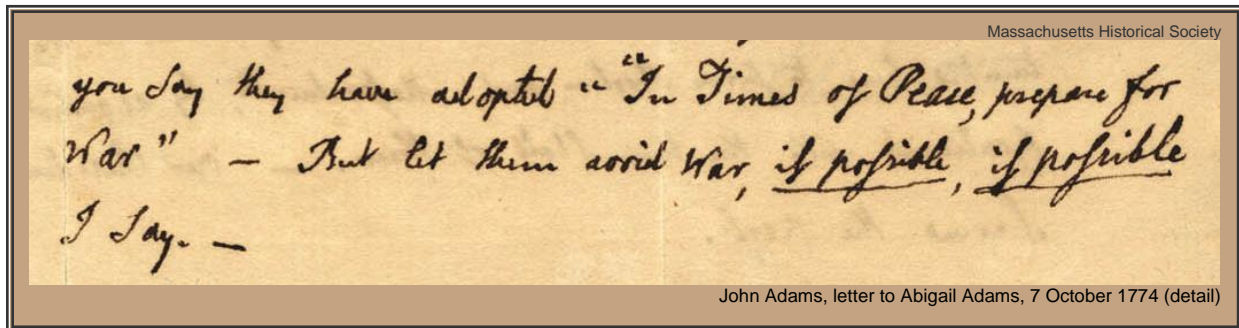 Massachusetts Historical Society
you Say they have adopted "“In Times of Peace, prepare for
War" — But let them avoid War, if poſsible, if poſsible
I Say. —
John Adams, letter to Abigail Adams, 7 October 1774 (detail)